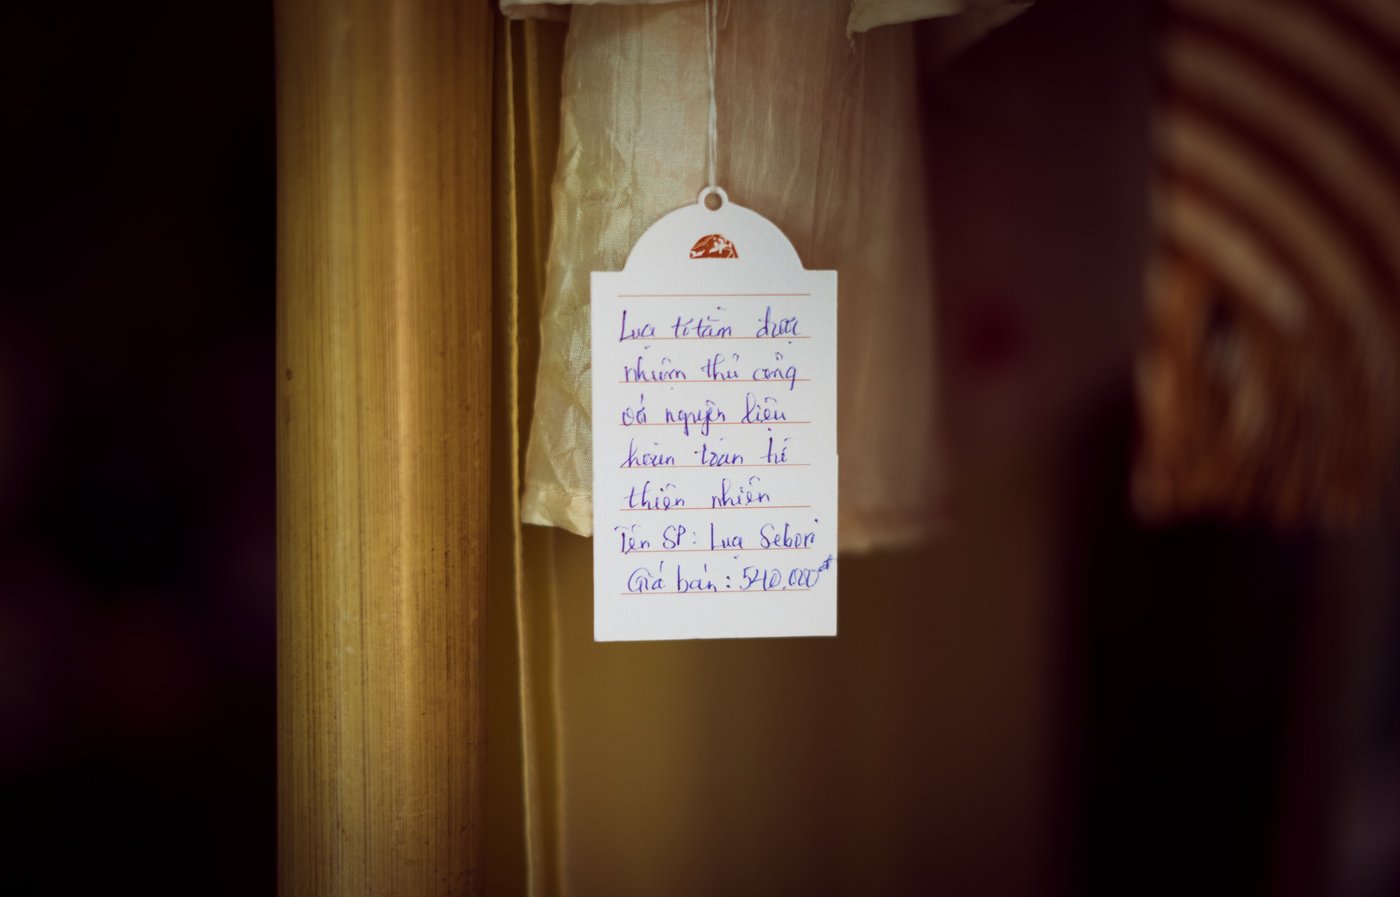 Lụa tơ tằm được
nhuộm thủ công
với nguyên liệu
hoàn toàn từ
thiên nhiên
Tên SP: Lụa Sebori
Giá bán: 540.000đ